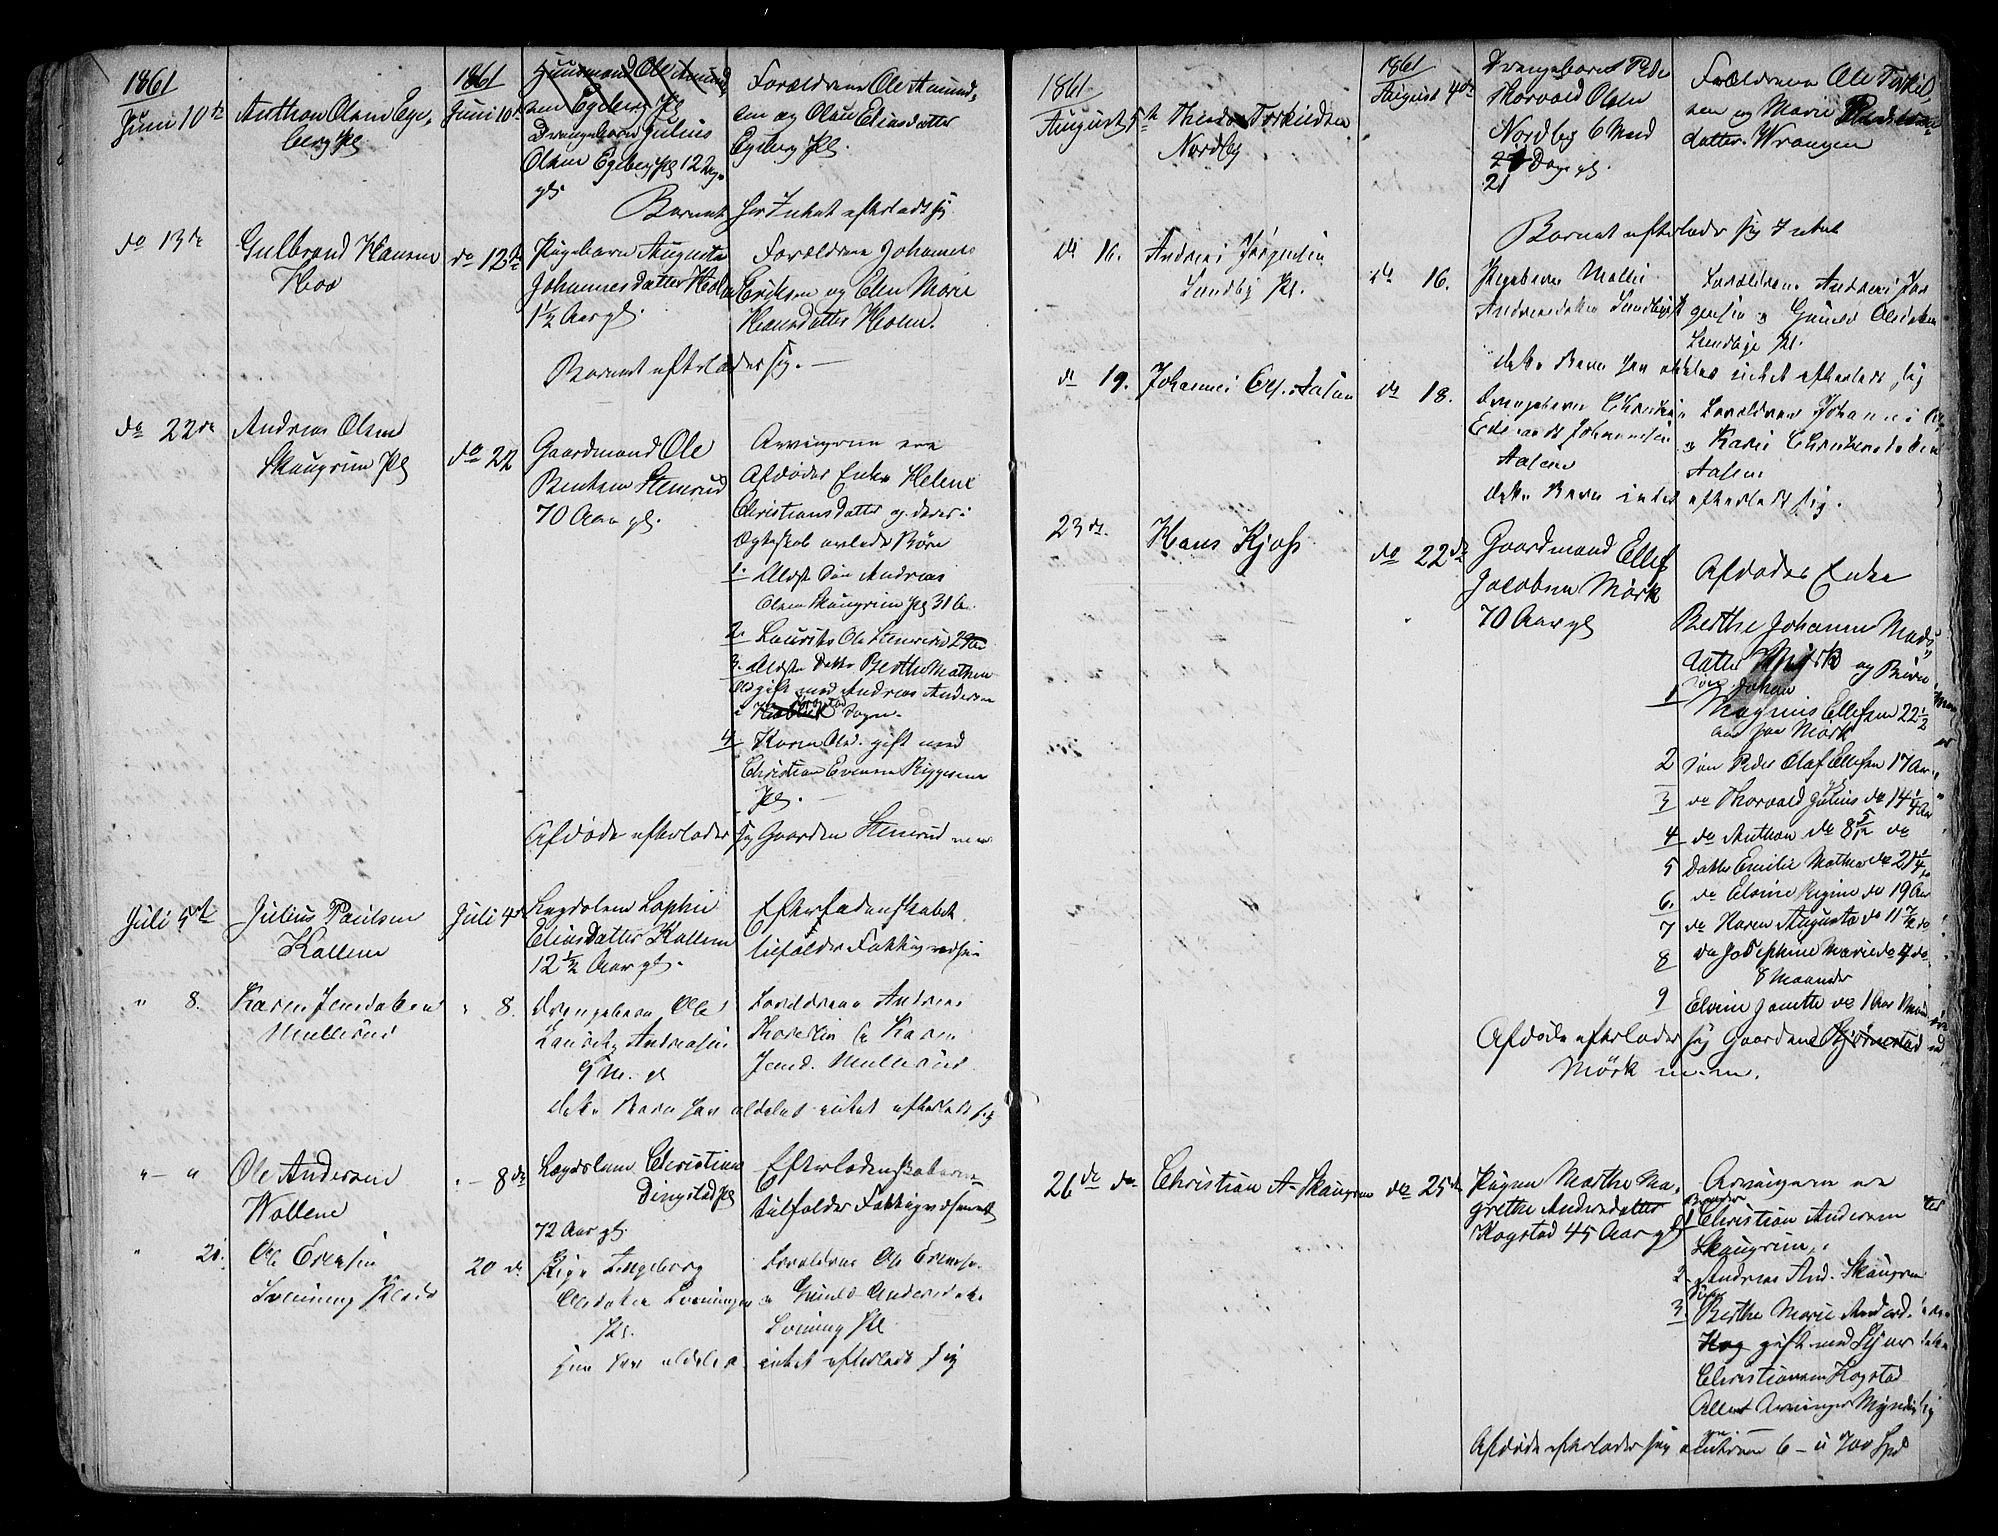 1861
Juni 10de
Anthon Olsen Ege-
berg Pl
1861
Juni 10de
Huusmand Ole Amund
sen Egeberg Pl
Drengebarn Julius
Olsen Egeberg Pl 12 Dage
gl.
Forældrene Ole Amund-
sen og Olau Eliasdatter
Egeberg Pl.
Barnet har Intet efterladt sig
do 13de
Gulbrand Hansen
Hoo
do 12te
Pigebarn Augusta
Johannesdatter Holm
1½ Aar gl.
Forældrene Johannes
Eriksen og Elen Marie
Hansdatter Holm.
Barnet efterlader sig. —
do 22de
Andreas Olsen
Skaugrim Pl
do 22
Gaardmand Ole
Stenrud
70 Aar gl.
Arvingerne ere
Afdødes Enke Helene
Christiansdatter og deres i
Ægteskab avlede Børn
1. Ældste Søn Andreas
Olsen Skaugrim Pl 31
2. Laurits Ols Stenrud
3. Ældste Datter Berthe Mathea
Olsd gift med Andreas Andersen
i Sogn.
4. Karen Olsd. gift med
Christian Evensen
Pl. —
Afdøde efterlader sig Gaarden Stenrud m.m.
Juli 5te
Julius Paulsen
Kallem
Juli 4de
Lægdslem Sophie
Eliasdatter Kallem
12½ Aar gl.
Efterladenskabet
tilfalder Fattigvæsen
" 8.
Karen Jensdatter
Mullerud
" 8.
Drengebarn Ole
Laurits Andreasen
9 M. gl
Forældrene Andreas
& Karen
Jensd. Mullerud.
dette Barn har aldeles intet efterladt sig
" — "
Ole Andersen
Wollene
" – 8de
Lægdslem Christian
Dingstad Pl
72 Aar gl.
Efterladenskaberne
tilfalder Fattigvæsenet
" 21.
Ole Evensen
Svenning Plads
20 de
Pige Ingeborg
Olesdatter Svenningen
Pl.
Forældrene Ole Evensen
& Gunild Andersdatter
Svening Pl
hun har aldeles intet efterladt sig
1861
August 5te
Theodor Torkildsen
Nordby
1861
August 4de
Drengebarnet Peder
Thorvald Olsen
Nordby 6 Mnd
21 Dage gl.
Forældrene Ole Torkild-
sen og Marie
datter Wrangen
Barnet efterlader sig Intet
do 16.
Andreas Jørgensen
Sundby Pl.
do 16.
Pigebarn Mathie
Andreasdatter Sundby Pl
Forældrene Andreas Jør
gensen & Gunild Olsdatter
Sundbye Pl.
dette Barn har aldeles intet efterladt sig
do 19.
Johannes Aasen
do 18.
Drengebarn Christian
Edevardt Johannesen
Aasene
Forældrene Johannes
& Karie Christensdatter
Aasene
dette Barn intet efterladt sig.
23de.
Hans Kjoss
do 22de
Gaardmand Ellef
Jacobsen Mørk
70 Aar gl
Afdødes Enke
Berthe Johanne Mads-
datter Mørk og Børn
1 Søn Johan
Magnus Ellefsen 22½
Mørk
2 Søn Peder Olaf Ellefsen 17 Aar
3 do Thorvald Julius do 14¼ Aar
4 do Anthon do 8 5/12 do
5 Datter Emilie Mathea do 21¼ do
6. do Elvine Regine do 19 Aar
7 do Karen Augusta do 11 7/12 do
8 do Josephine Marie do 4 do
8 Maaneder
9 Elvine Janette do 1 Aar 1 Maan
Afdøde efterlader sig Gaardene Bjørnstad
Mørk m.m.
26de do
Christian A. Skaugrim
do 25de
Pigen Marthe Ma-
grethe Andersdatter
Kogstad 45 Aar gl
Arvingerne ere
Broder
1 Christian Andersen
Skaugrim,
2. Andreas And. Skaugrim
Søster
3. Berthe Marie Andersd.
Kog gift med
Christiansen Kogstad
Alle Arvinger Myndig
Afdøde efterlader sig 6 – a 700 Spd